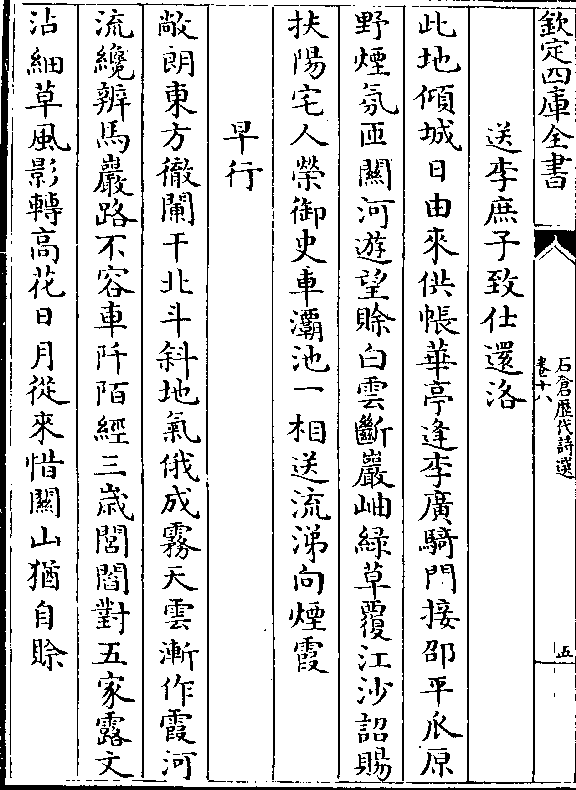 欽定四庫全書
石倉歷代詩選
卷十八
五
送李庶子致仕還洛
此地傾城日由來供帳華亭逢李廣騎門接邵平瓜原
野煙氛匝關河遊望賒白雲斷巖岫緑草覆江沙詔賜
扶陽宅人榮御史車灞池一相送流涕向煙霞
早行
敞朗東方徹闌干北斗斜地氣俄成霧天雲漸作霞河
流纔辨馬巖路不容車阡陌經三歲閭閻對五家露文
沾細草風影轉髙花日月從來惜關山猶自賒